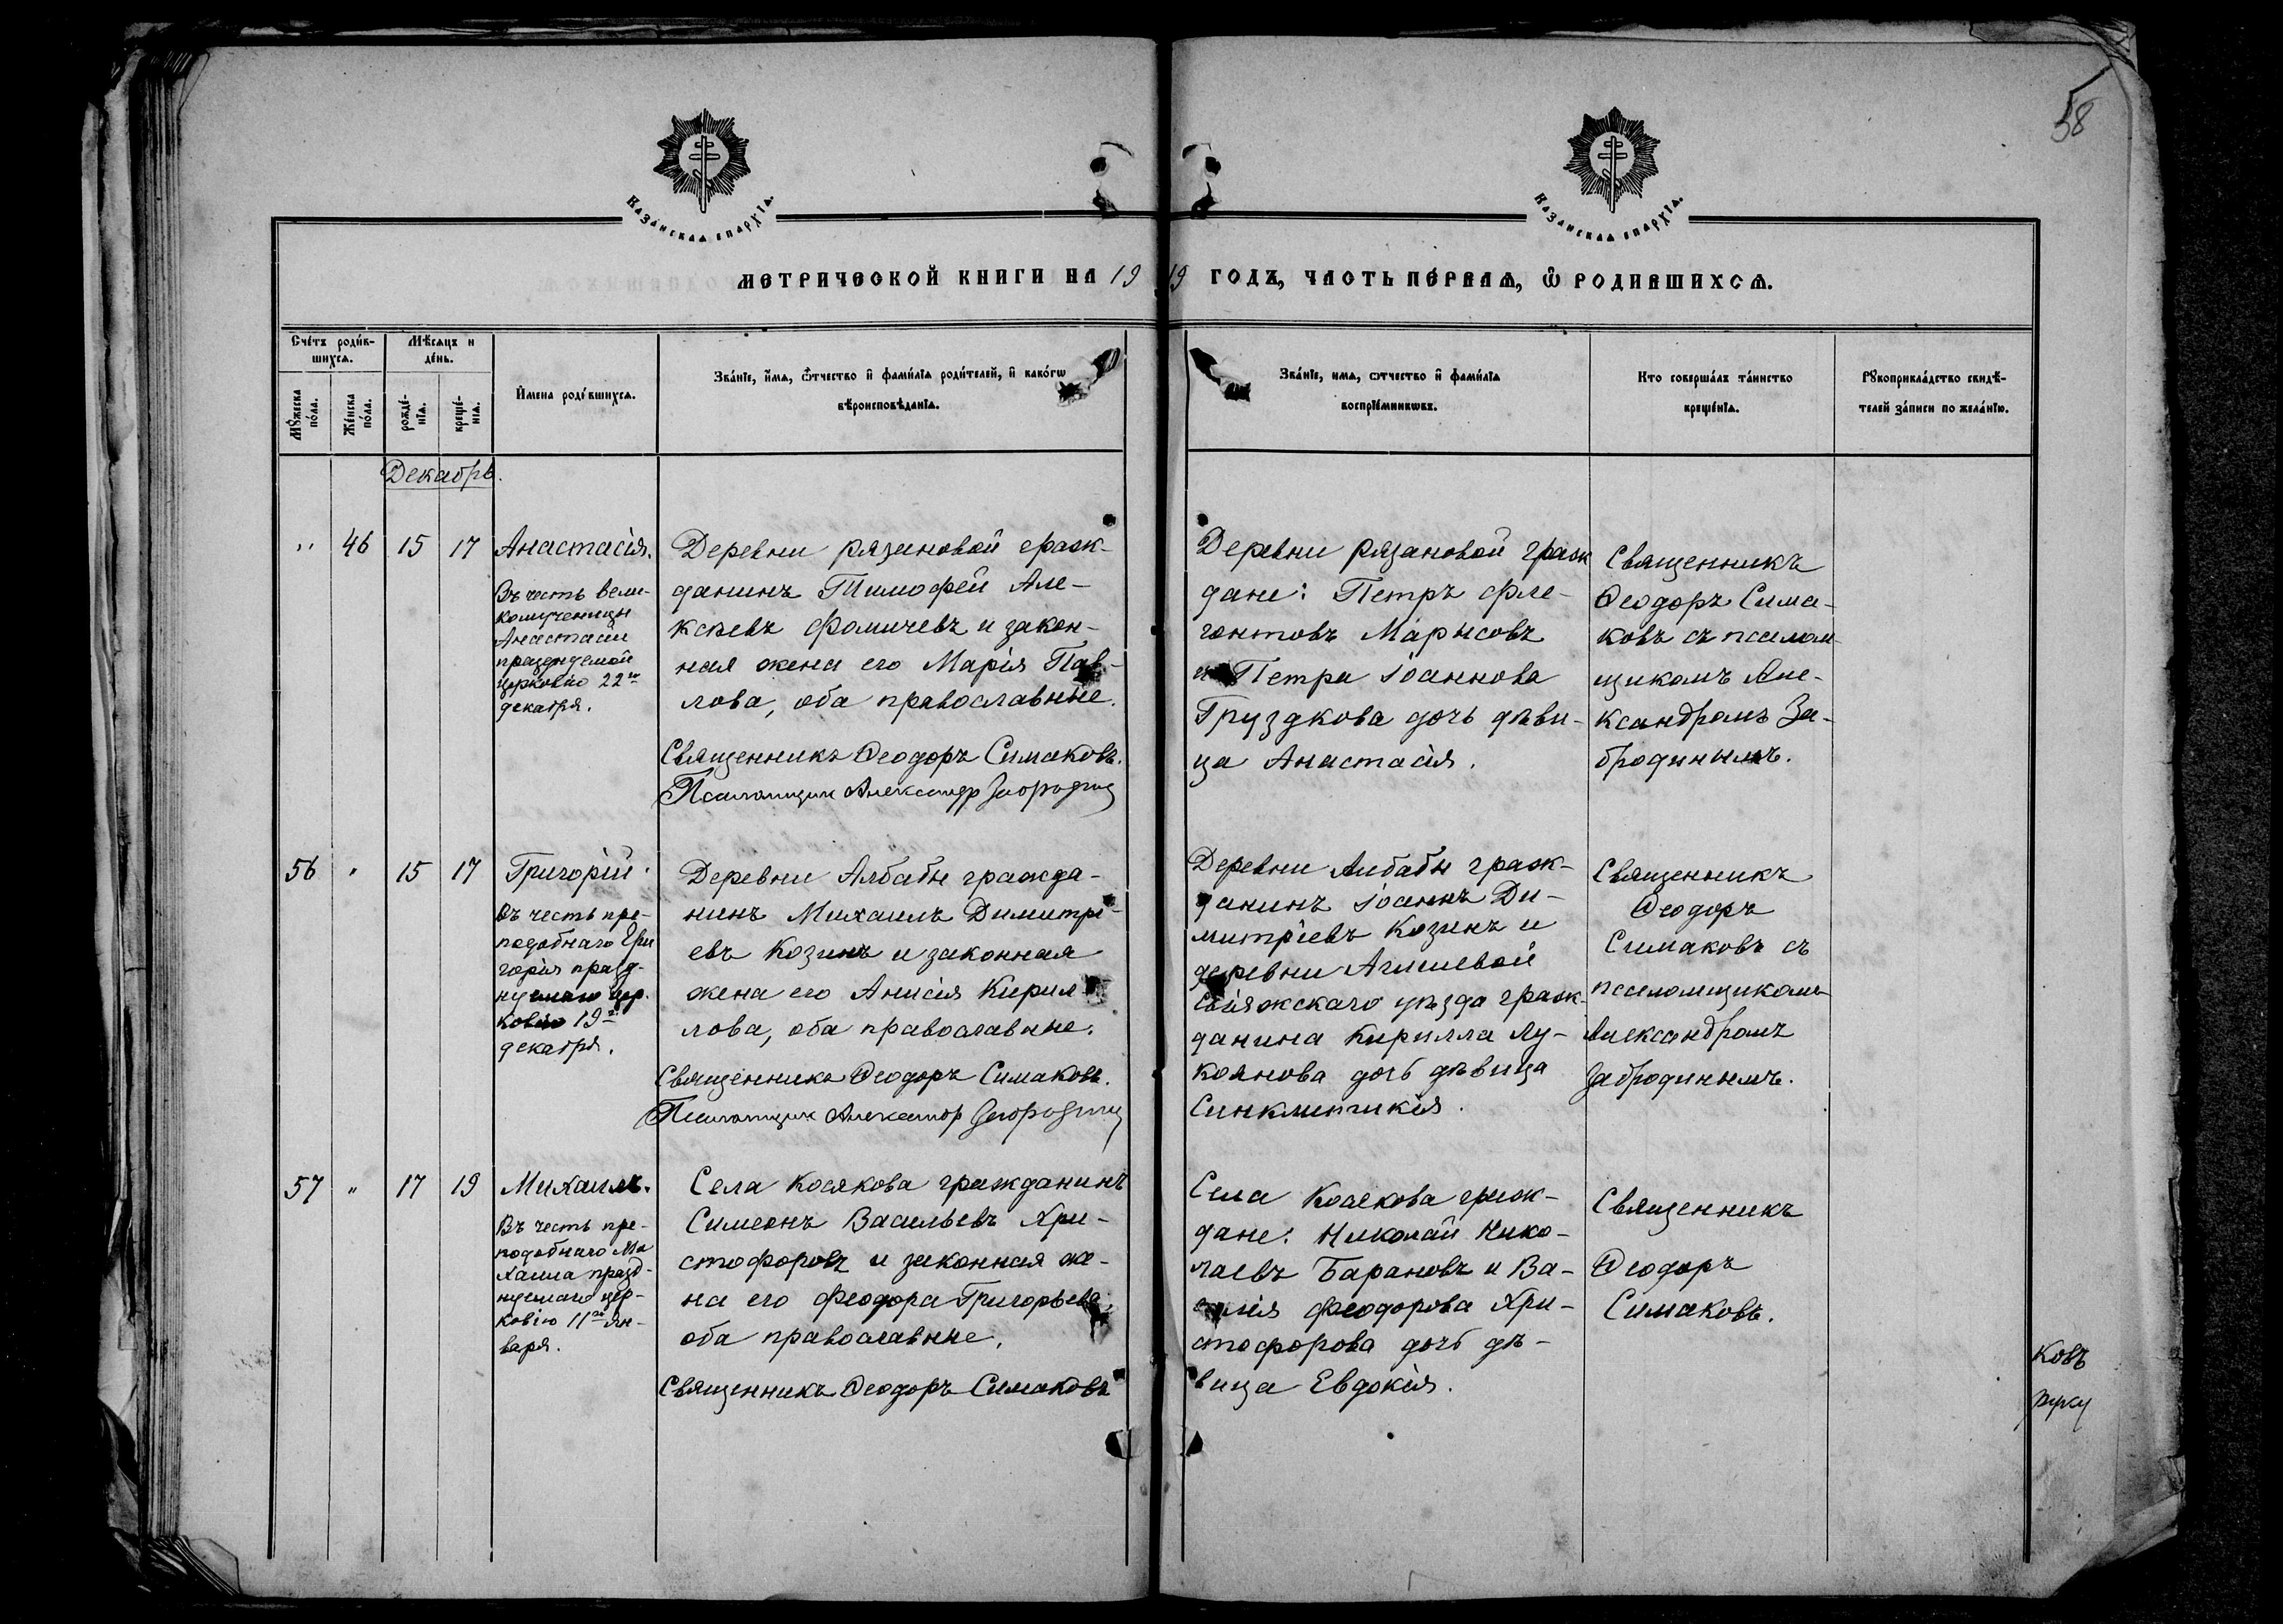 58
Казанская епархіа.
Казанская епархіа.
Метрической книги на 1919 годъ, часть первая, ѡ родившихся.
Счетъ родив-
шихся.
Мѣсяцъ и
день.
Мужеска
пола.
Женска
пола.
рожде-
нія.
креще-
нія.
Имена родившихся.
Званіе, имя, ѿтчество и фамиліа родителей, и какогѡ
вѣроисповѣданіа.
Званіе, имя, ѿтчество и фамиліа
воспріемникѡвъ.
Кто совершалъ таинство
крещеніа.
Рукоприкладство свидѣ-
телей записи по желанію.
Декабрь.
" 46 15 17 Анастасія.
Въ честь вели-
комученицы
Анастасіи
празднуемой
церковію 22го
декабря.
Деревни Рязановой граж-
данинъ Тимофей Але-
ксѣевъ Фомичевъ и закон-
ная жена его Марія Пав-
лова, оба православные.
Священникъ Ѳеодоръ Симаковъ.
Псаломщик Александр Забродин
Деревни Рязановой граж
дане: Петръ Фле-
гонтовъ Марисовъ
и Петра Іоаннова
Груздкова дочь дѣви-
ца Анастасія.
Священникъ
Ѳеодоръ Сима-
ковъ съ псалом-
щикомъ Але-
ксандромъ За-
бродинымъ.
56 " 15 17 Григорій.
Въ честь пре-
подобнаго Гри
горія празд-
нуемаго цер-
ковію 19го
декабря.
Деревни Албабы гражда-
нинъ Михаилъ Димитрі-
евъ Козинъ и законная
жена его Анисія Кирил-
лова, оба православные.
Священникъ Ѳеодоръ Симаковъ.
Псаломщик Александр Забродин
Деревни Албабы граж-
данинъ Іоаннъ Ди-
митріевъ Козинъ и
деревни Агишевой
Свіяжскаго уѣзда граж-
данина Кирилла Лу-
коянова дочь дѣвица
Синклитикія.
Священникъ
Ѳеодоръ
Симаковъ съ
псаломщикомъ
Александромъ
Забродинымъ.
57 " 17 19 Михаилъ.
Въ честь пре-
подобнаго Ми
хаила празд-
нуемаго цер-
ковію 11го ян-
варя.
Села Косякова гражданинъ
Симеонъ Васильевъ Хри-
стофоровъ и законная же-
на его Феодора Григорьева,
оба православные.
Священникъ Ѳеодоръ Симаковъ
Села Косякова граж-
дане: Николай Нико-
лаевъ Барановъ и Ва-
силія Феодорова Хри-
стофорова дочь дѣ-
вица Евдокія.
Священникъ
Ѳеодоръ
Симаковъ.
ковъ
руку